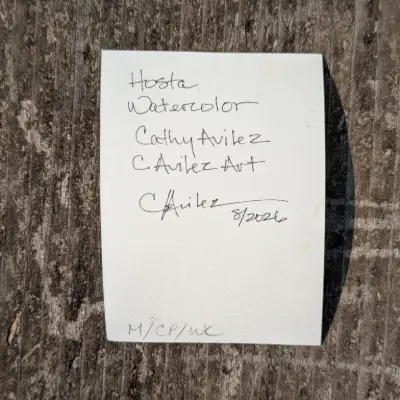 Hosta
Watercolor
Cathy Avilez
C. Avilez Art
CAvilez
8/2026
M/CP/WC